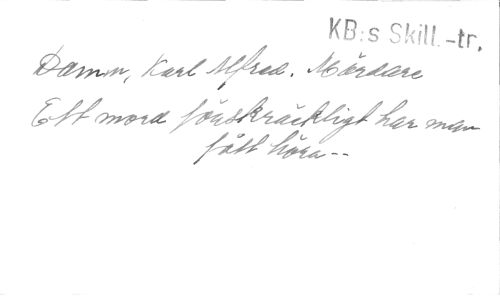 KB:s Skill.-tr.
Damm, Karl Alfred. Mördare
Ett mord förskräckligt har man
fått höra--